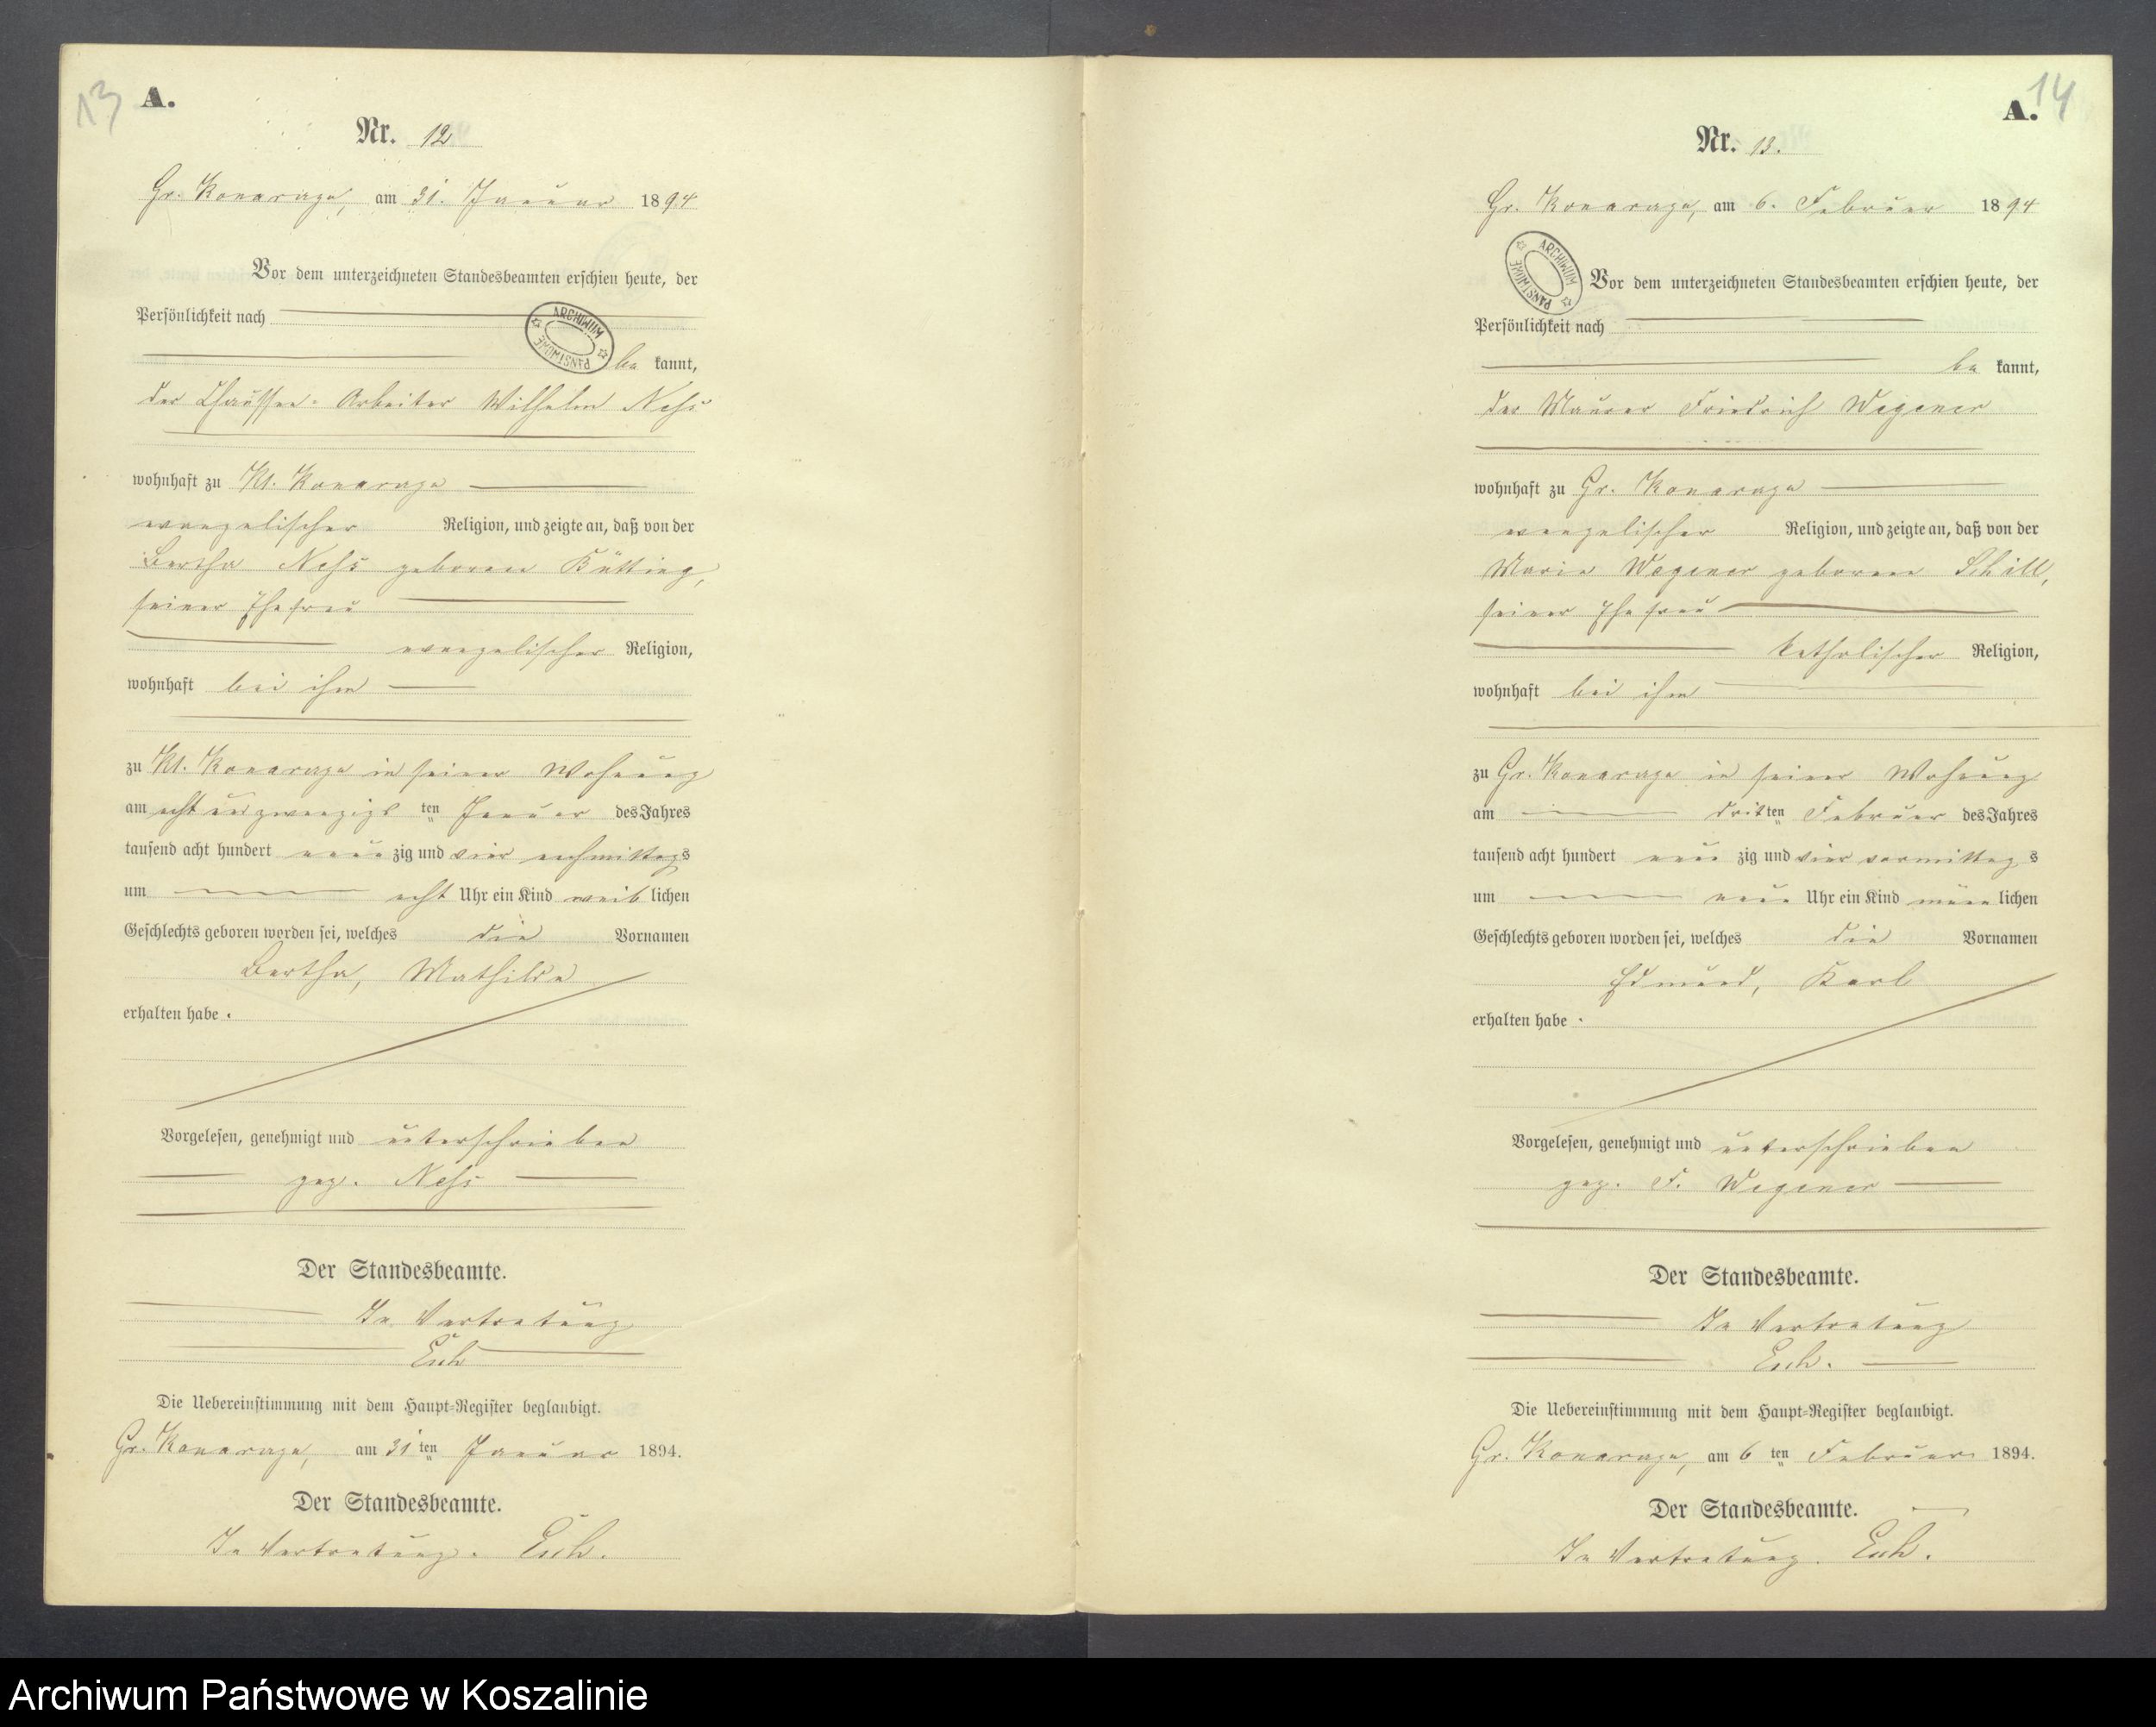 13
A.
Nr. 12
Gr. Konarzyn, am 31. Januar 1894
Vor dem unterzeichneten Standesbeamten erschien heute, der
Persönlichkeit nach
ARCHIWUM PAŃSTWOWE
be kannt,
der Chaussee-Arbeiter Wilhelm Ness
wohnhaft zu Kl. Konarzyn
evangelischer Religion, und zeigte an, daß von der
Bertha Ness geborene Bütting,
seiner Ehefrau
evangelischer Religion,
wohnhaft bei ihm
zu Kl. Konarzyn in seiner Wohnung
am acht und zwanzigsten Januar des Jahres
tausend acht hundert neunzig und vier nachmittags
um acht Uhr ein Kind weiblichen
Geschlechts geboren worden sei, welches die Vornamen
Bertha, Mathilde
erhalten habe.
Vorgelesen, genehmigt und unterschrieben
gez. Ness
Der Standesbeamte.
In Vertretung
Die Uebereinstimmung mit dem Haupt-Register beglaubigt.
Gr. Konarzyn, am 31ten Januar 1894.
Der Standesbeamte.
In Vertretung.
14
A.
Nr. 13.
Gr. Konarzyn, am 6. Februar 1894
ARCHIWUM PAŃSTWOWE
Vor dem unterzeichneten Standesbeamten erschien heute, der
Persönlichkeit nach
be kannt,
der Maurer Friedrich Wegener
wohnhaft zu Gr. Konarzyn
evangelischer Religion, und zeigte an, daß von der
Maria Wegener geborene Schill,
seiner Ehefrau
katholischer Religion,
wohnhaft bei ihm
zu Gr. Konarzyn in seiner Wohnung
am dritten Februar des Jahres
tausend acht hundert neun zig und vier vormittags
um neun Uhr ein Kind männlichen
Geschlechts geboren worden sei, welches die Vornamen
Edmund, Karl
erhalten habe.
Vorgelesen, genehmigt und unterschrieben
gez. F. Wegener
Der Standesbeamte.
In Vertretung
Die Uebereinstimmung mit dem Haupt-Register beglaubigt.
Gr. Konarzyn, am 6ten Februar 1894.
Der Standesbeamte.
In Vertretung.
Archiwum Państwowe w Koszalinie